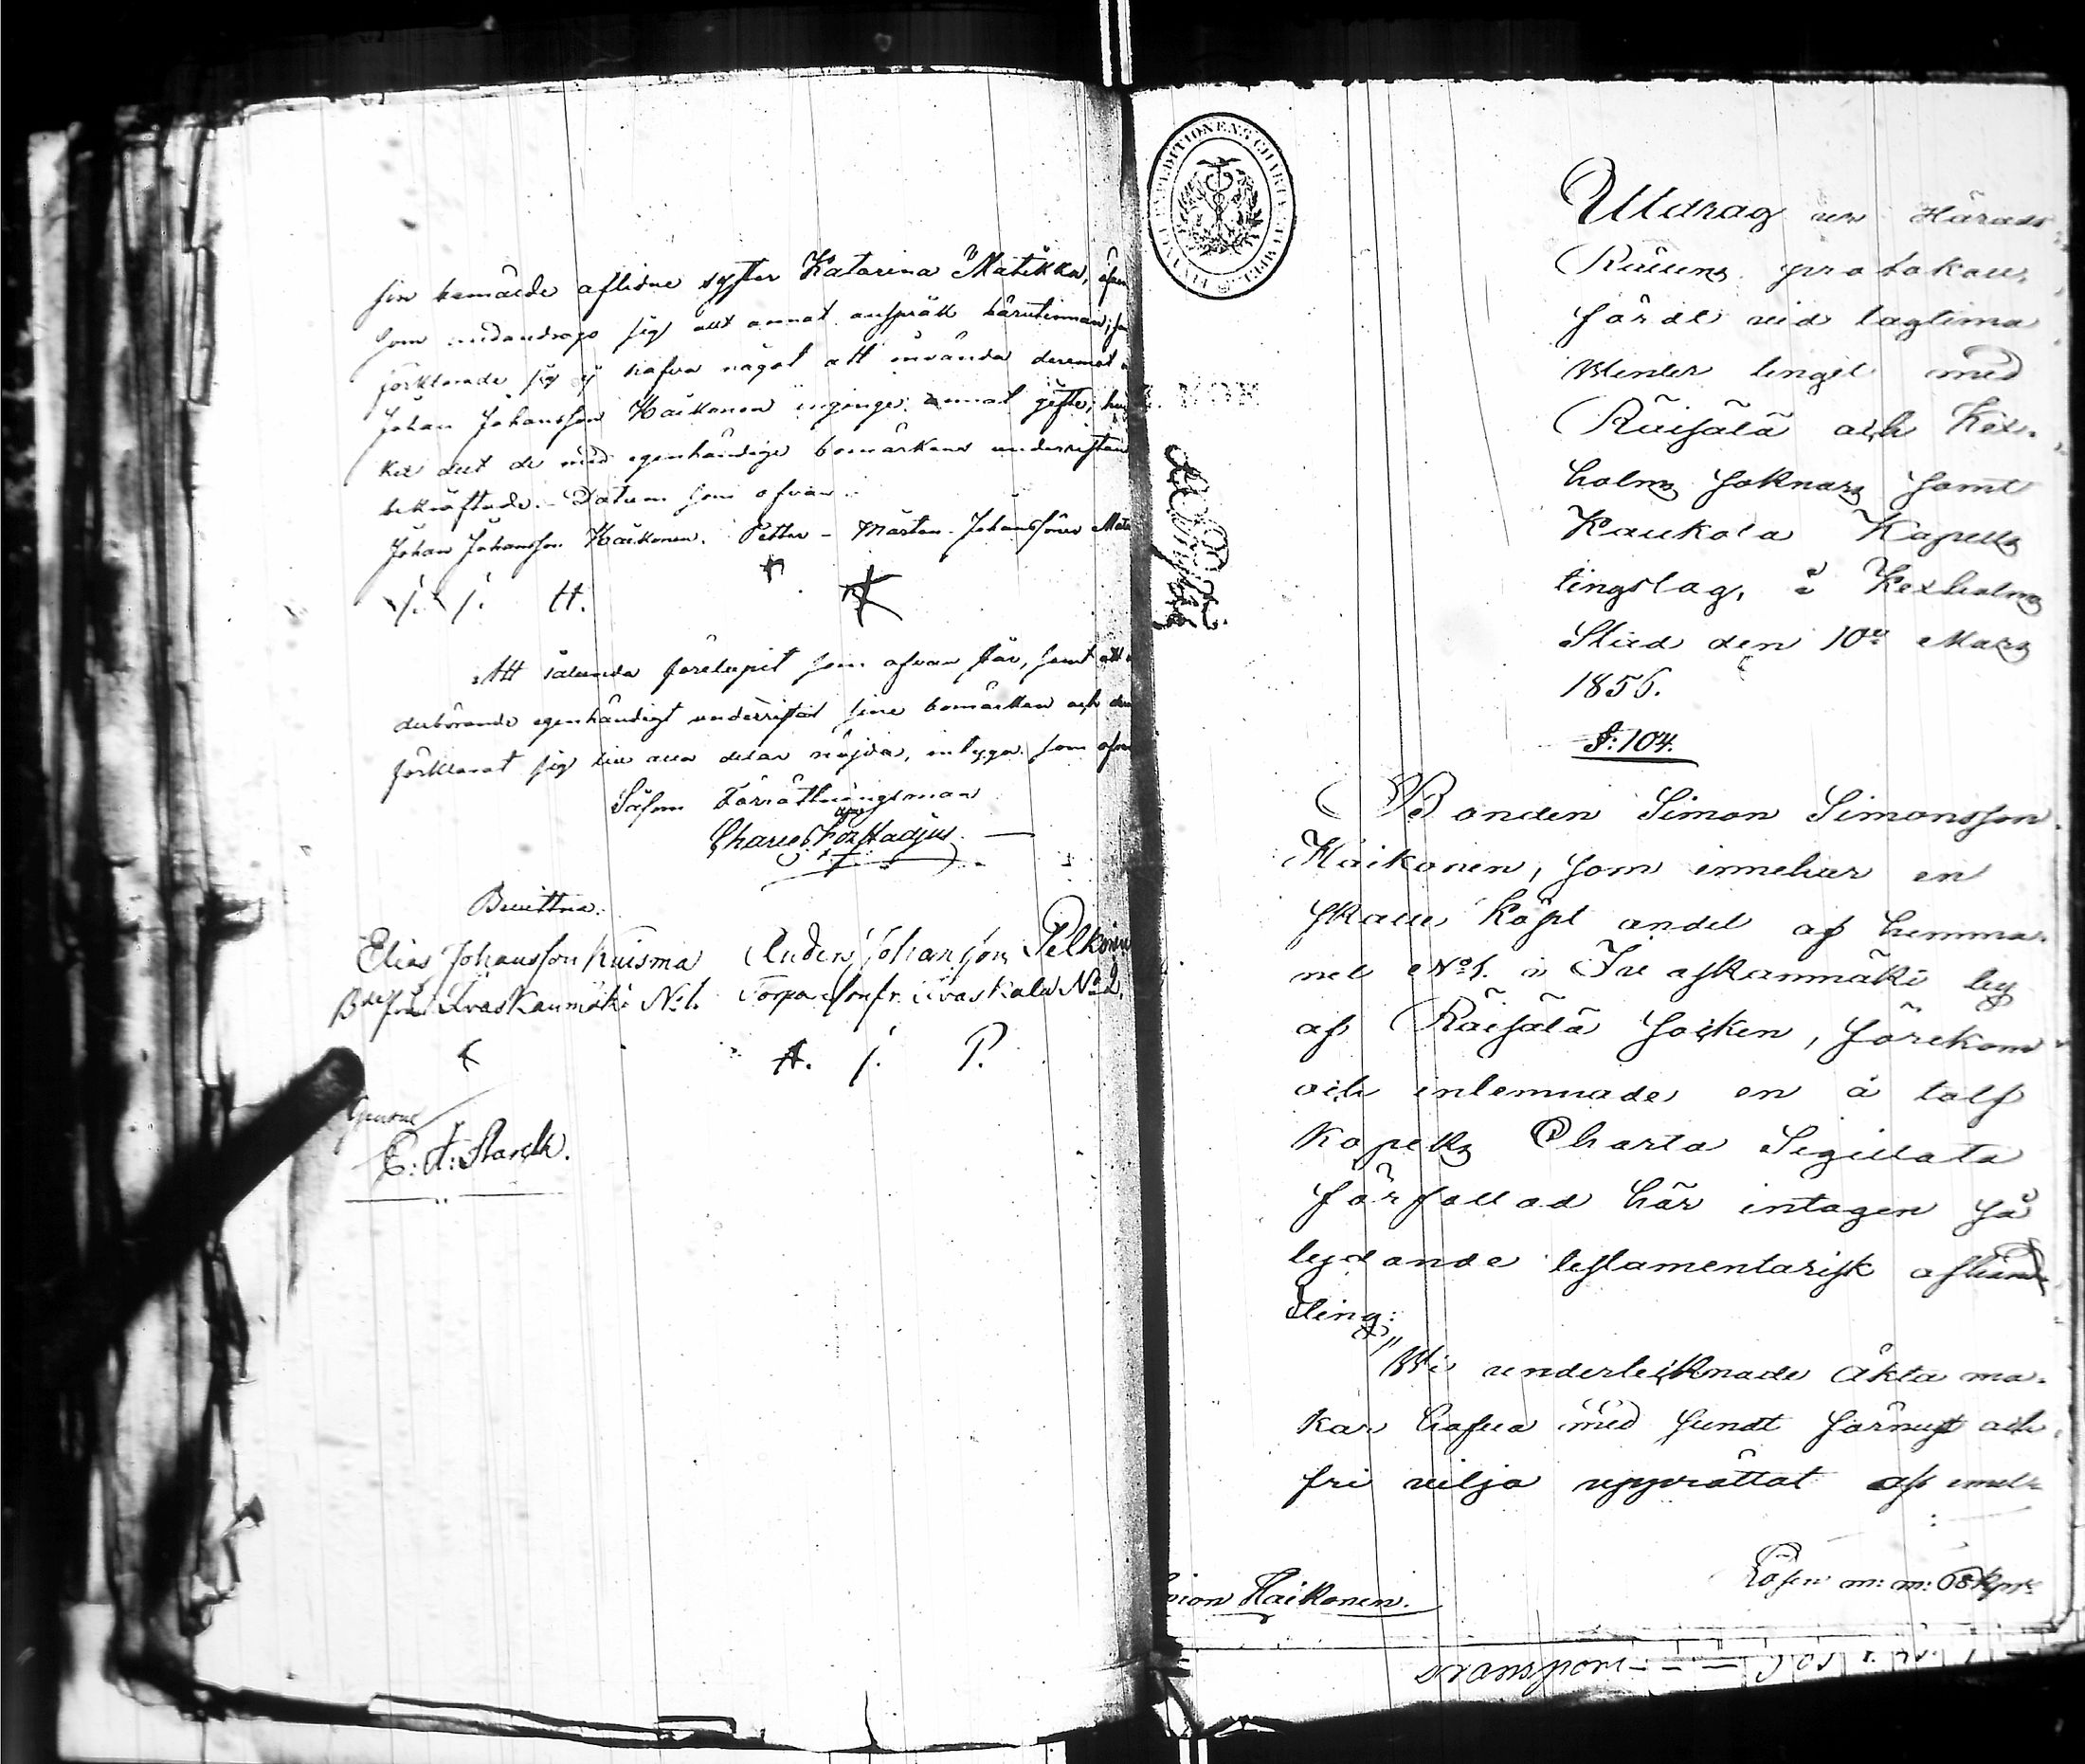 sin bemälde aflidne syster Katarina Matikka, äfven
som undandrogo sig allt annat anspråk härutinnan;
förklarade sig ej hafva något att invända deremot
Johan Johansson Haikonen ingingo annat gifte;
ket allt de med egenhändige bomärkens underristan
bekräftade. Datum som ofvan.
Johan Johansson Haikonen. Petter - Mårten Johanssöner Mati
J. J. H.
Att sålunda förelupit som ofvan står, samt att
derbörande egenhändigt underristat sine bomärken och
förklarat sig till alla delar nöjda, intyga som ofvan
Såsom Förrättningsman
Bevittna:
Elias Johansson Kuisma Anders Johansson Pelkonen
Bde från Ivaskanmäki No 1. Torpare från Ivaskala No 2.
A. J. P.
E: A: Starck.
Utdrag ur Härads
Rättens protokoll,
fördt vid lagtima
Winter tinget med
Räisälä och Kex-
holms socknars samt
Kaukola Kapells
tingslag, i Kexholms
Stad den 10de Mars
1856.
§: 104.
Bonden Simon Simonsson
Haikonen, som innehar en
skatte köpt andel af hemma-
net No 1. i Ivaskanmäki by
af Räisälä socken, förekom
och inlemnade en å tolf
kopeks Charta Sigillata
författad här intagen så
lydande testamentarisk afhand-
ling:
"Wi undertecknade äkta ma-
kar hafva med sundt förnuft och
fri vilja upprättat
Haikonen.
Lösen m: m: 68 kpr
Transport